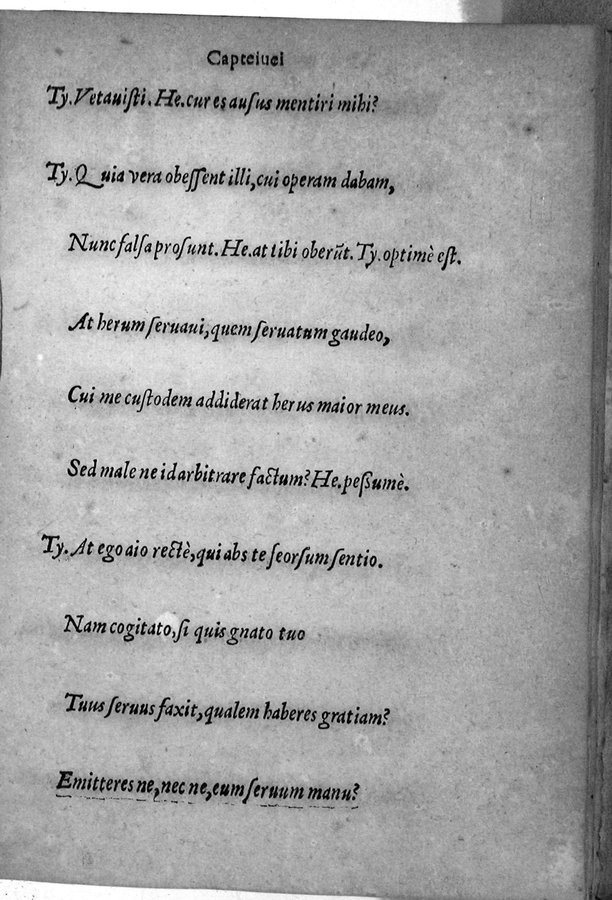 Capteiuei
Ty.Vetauiſti. He.cur es auſus mentiri mihi?
Ty. Quia vera obeſſent illi, cui operam dabam,
Nunc falſa proſunt. He.at tibi oberūt. Ty. optimè eſt.
At herum ſeruaui, quem ſeruatum gaudeo,
Cui me cuſtodem addiderat herus maior meus.
Sed male ne id arbitrare factum? He.peßumè.
Ty. At ego aio rectè, qui abs te ſeorſum ſentio.
Nam cogitato, ſi quis gnato tuo
Tuus ſeruus faxit, qualem haberes gratiam?
Emitteres ne, nec ne, eum ſeruum manu?